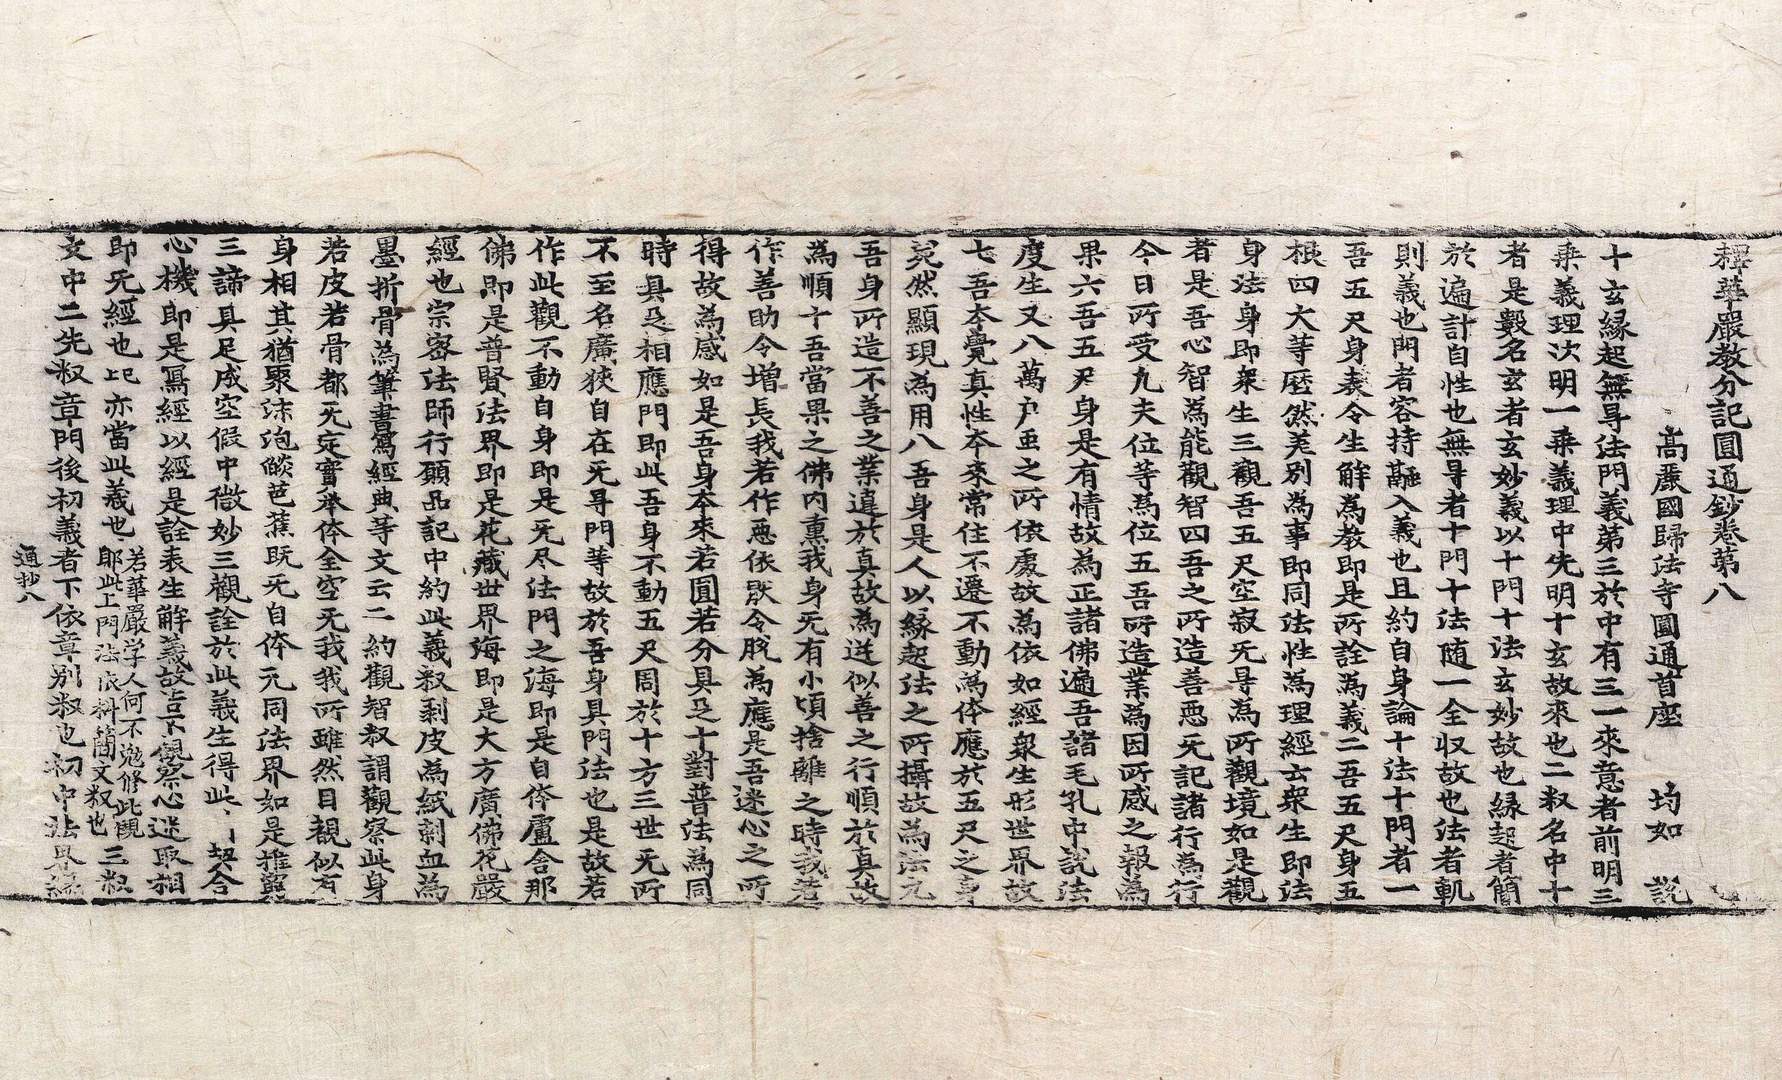 釋華嚴教分記圓通鈔卷第八
高麗國歸法寺圓通首座 均如 說
十玄緣起無㝵法門義第三於中有三一來意者前明三
乗義理次明一乗義理中先明十玄故來也二釈名中十
者是數名玄者玄妙義以十門十法玄妙故也緣起者簡
於遍計自性也無㝵者十門十法随一全収故也法者軌
則義也門者容持融入義也且約自身論十法十門者一
吾五尺身表令生解為教即是所詮為義二吾五尺身五
根四大等歷然差別為事即同法性為理經云衆生即法
身法身即衆生三觀吾五尺空寂无㝵為所觀境如是觀
者是吾心智為能觀智四吾之所造善惡无記諸行為行
今日所受凡夫位等為位五吾所造業為因所感之報為
果六吾五尺身是有情故為正諸佛遍吾諸毛孔中說法
度生又八萬戶虫之所依處故為依如經衆生形世界故
七吾本覺真性本來常住不遷不動為体應於五尺之身
宛然顯現為用八吾身是人以緣起法之所攝故為法九
吾身所造不善之業違於真故為逆似善之行順於真故
為順十吾當果之佛內熏我身无有小頃捨離之時我若
作善助令增長我若作惡依猒令脫為應是吾迷心之所
得故為感如是吾身本來若圓若分具足十對普法為同
時具足相應門即此吾身不動五尺周於十方三世无所
不至名廣狹自在无㝵門等故於吾身具門法也是故若
作此觀不動自身即是无尽法門之海即是自体盧舍那
佛即是普賢法界即是花藏世界海即是大方廣佛花嚴
經也宗密法師行願品記中約此義釈剥皮為紙刺血為
墨折骨為筆書寫經典等文云二約觀智釈謂觀察此身
若皮若骨都无定實举体全空无我我所雖然目覩似有
身相其猶聚沫泡燄芭蕉既无自体元同法界如是推窮
三諦具足成空假中微妙三觀詮於此義生得此 契合
心機即是寫經以經是詮表生解義故豈不觀察心迷取相
即无經也此亦當此義也 若華嚴学人何不勉修此觀 耶此上門法依料簡文釈也 三釈
文中二先釈章門後初義者下依章別釈也初中法界緣
通抄八